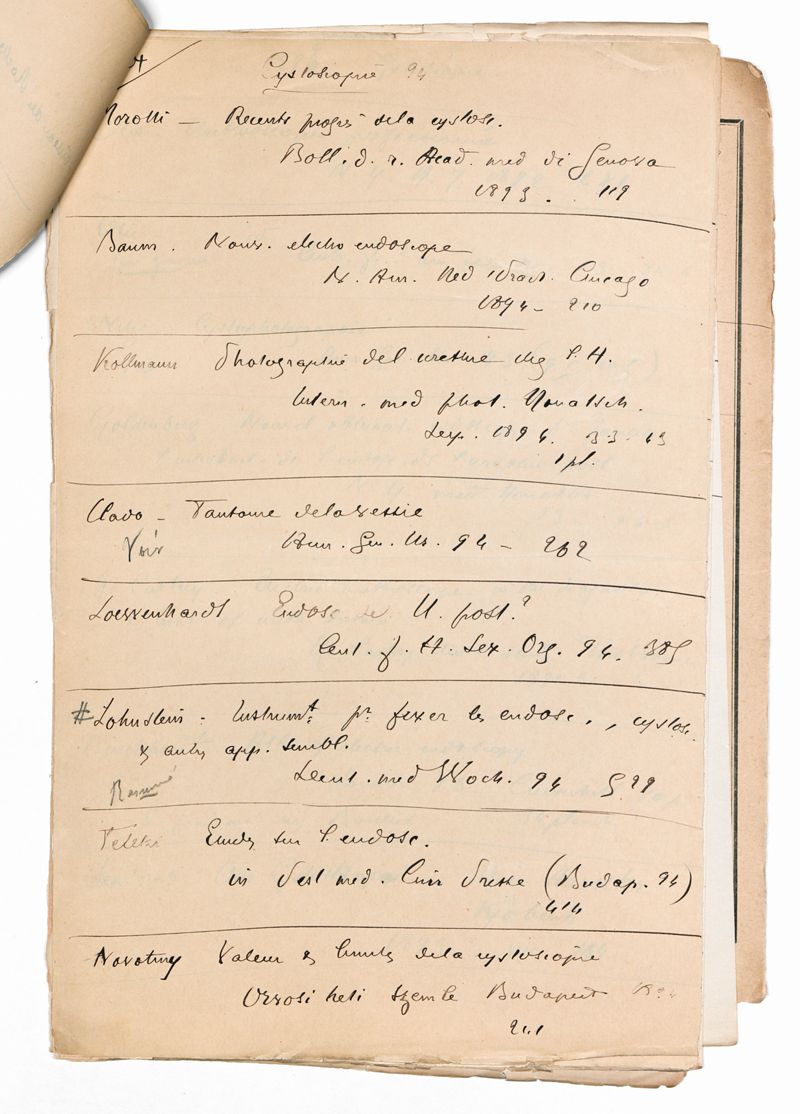 Cystoscopie 94
Morotti — Recents progrès dela cystosc.
Boll. d. r. Acad. med di Genova
1893. 119
Baum. Nouv. electro endoscope
N. Am. Med Chicago
1894 - 210
Kollmann Photographie del uretre chez l'H.
Intern. med phot. Monatsch.
Leip. 1894. 33-43
1 pl.
Clado - Fantome dela vessie
Voir Ann. Gen. Ur. 94 - 262
Loewenhardt Endosc de U. post.?
Cent. f. H. Sex. Org. 94. 385
# Lohnstein - Instrumt. pr fixer les endosc., cystosc.
& autres app. sembl.
Deut. med Woch. 94 599
Resumé
Teleki Etudes sur l'endosc.
in Pest med. Chir Presse (Budap. 94)
414
Novotny Valeur & limites dela cystoscopie
Orvosi heti szemle Budapest
241